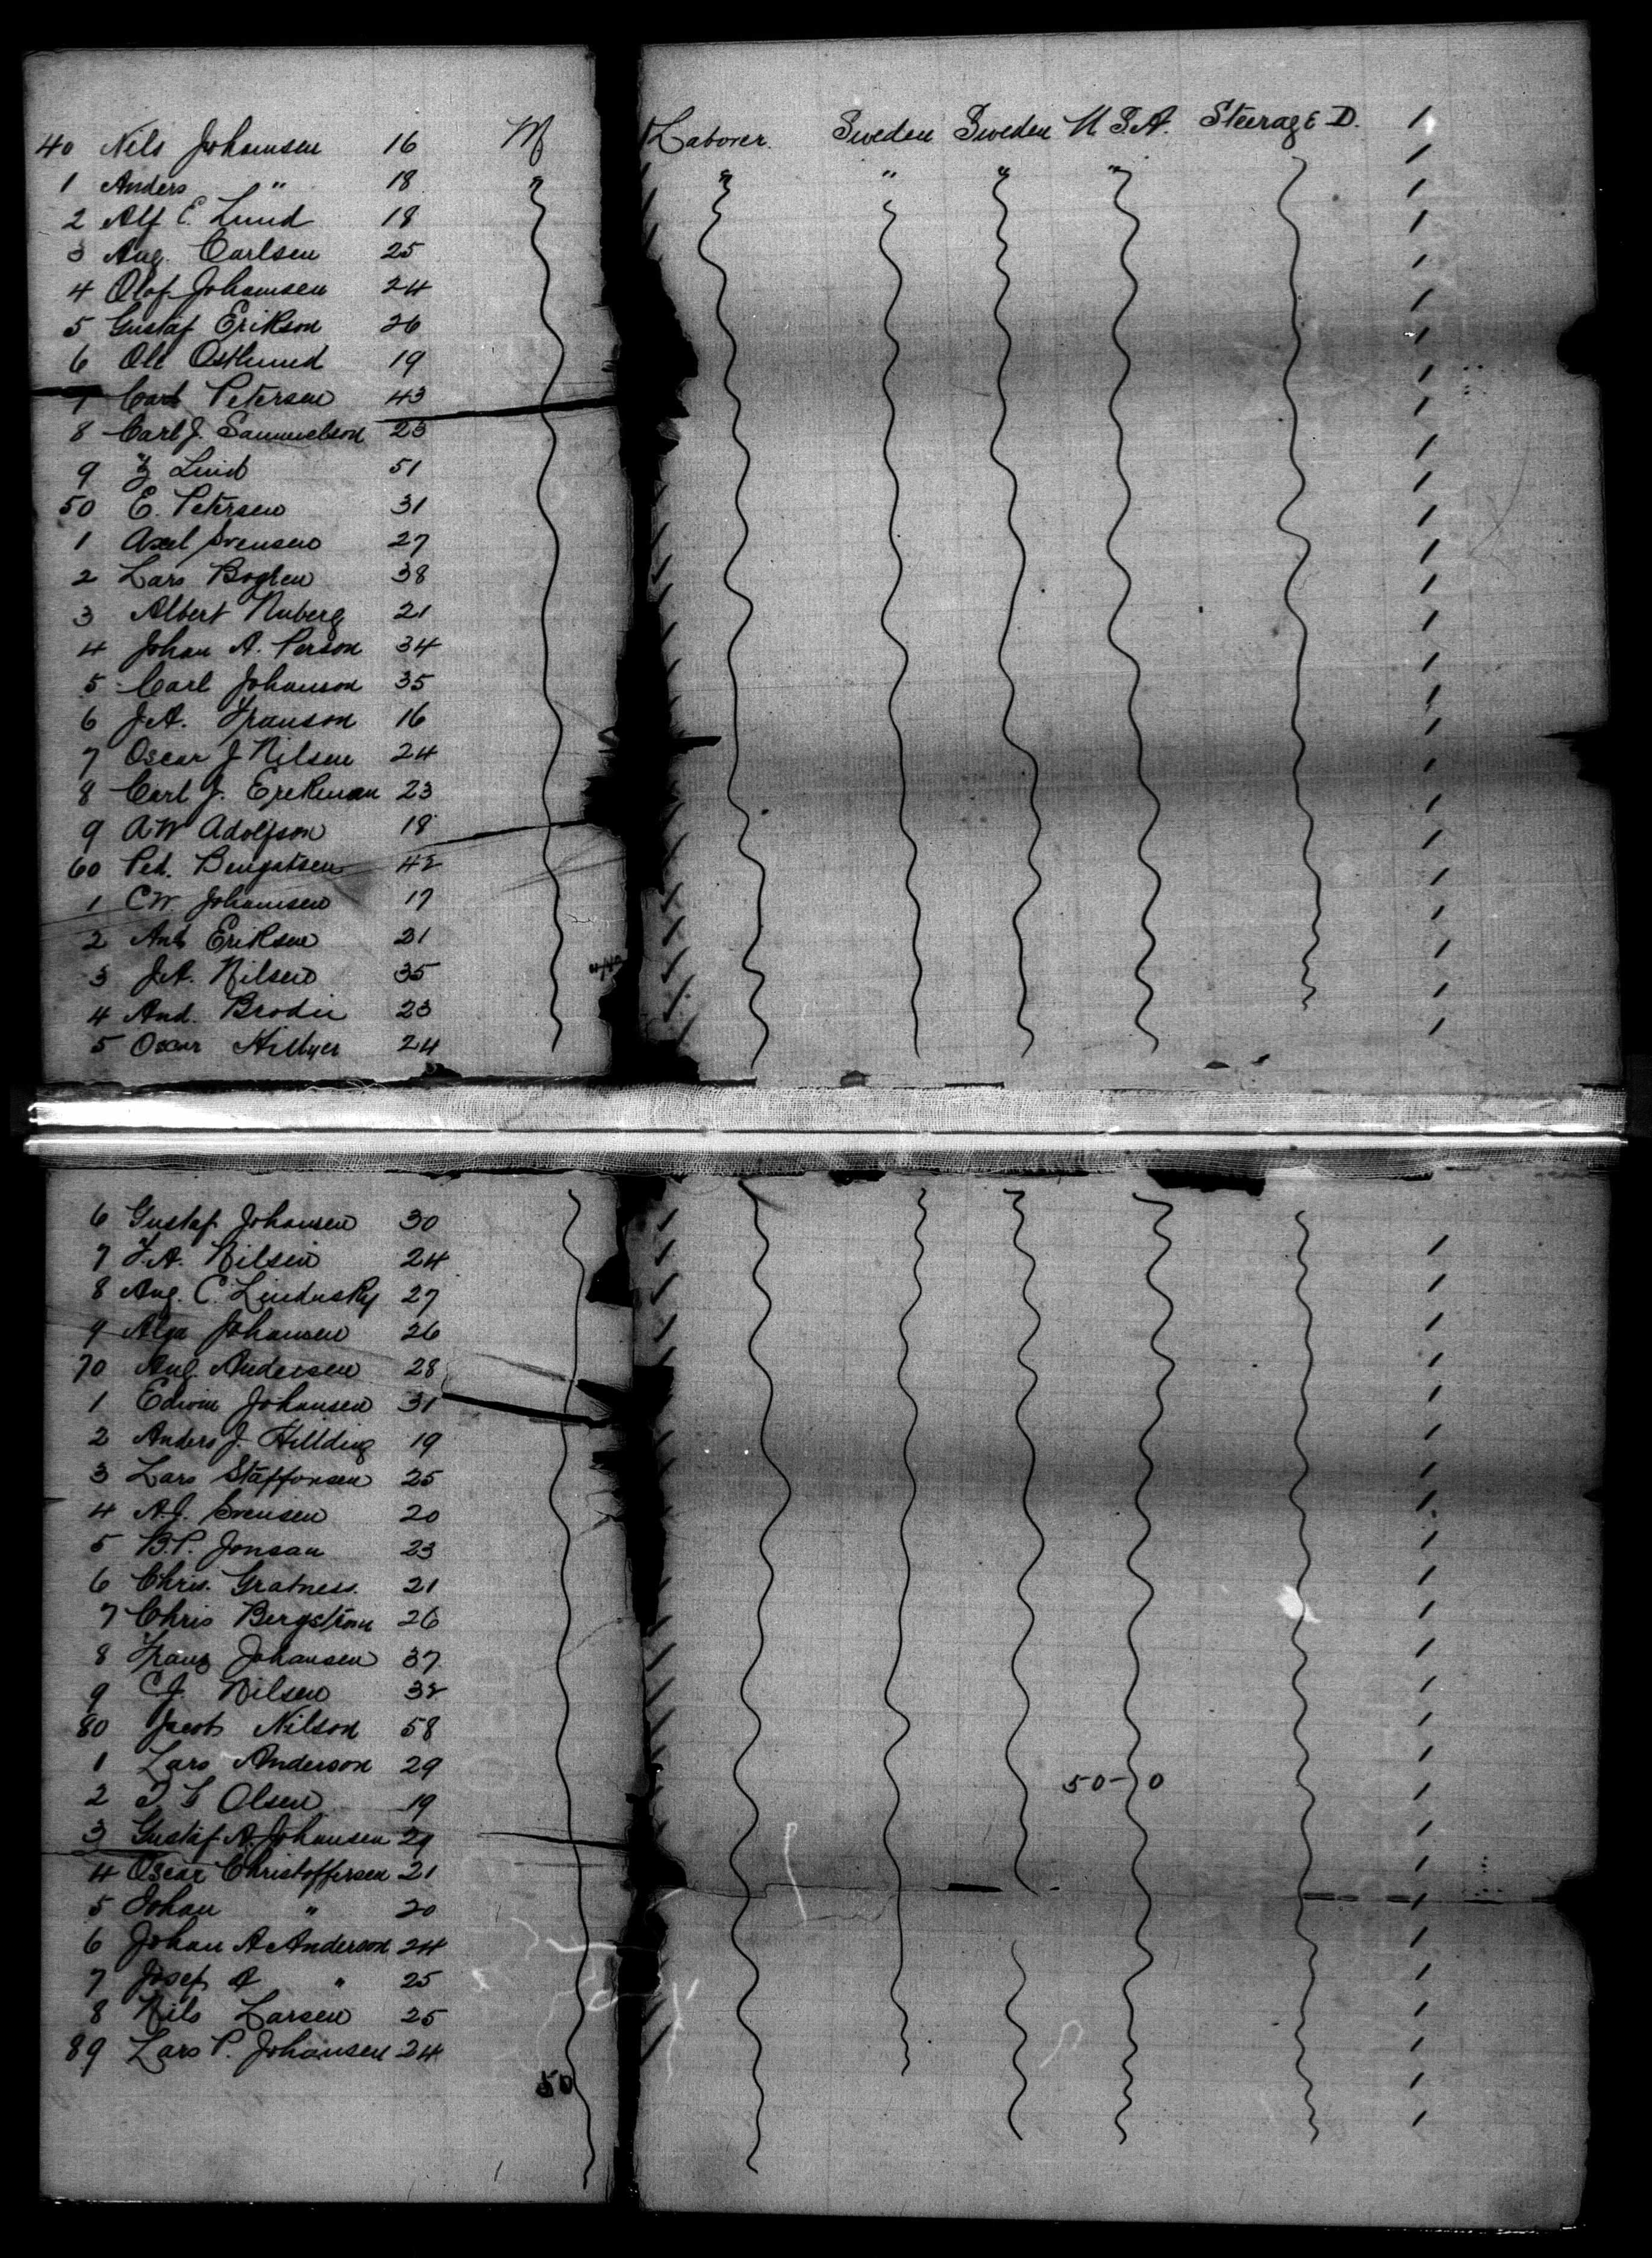 40 Nils Johansen 16 M Laborer Sweden Sweden U S.A. Steerage D. /
1 Anders " 18 " " " " "
2 Alf E. Lund 18
3 Aug. Carlsen 25
4 Olof Johansen 24
5 Gustaf Erikson 26
6 Ole Ostlund 19
7 Carl Petersen 43
8 Carl J. Samuelson 23
9 " Lind 51
50 E. Petersen 31
1 Axel Svensen 27
2 Lars Bogren 38
3 Albert Nuberg 21
4 Johan A. Person 34
5 Carl Johanson 35
6 J.A. Franson 16
7 Oscar J Nilsen 24
8 Carl J. Erekman 23
9 A.W Adolfson 18
60 Ped. Bengatsen 42
1 C.W. Johansen 17
2 And Eriksen 21
3 J.A. Nilsen 35
4 And. Brodin 23
5 Oscar 24
6 Gustaf Johansen 30
7 F.A. Nilsen 24
8 Aug. C. Lindusky 27
9 Johansen 26
70 Aug. Andersen 28
1 Edwin Johansen 31
2 Anders J. Hillding 19
3 Lars Staffonsen 25
4 A.J. Svensen 20
5 B.P. Jonsan 23
6 Chris. Gratness. 21
7 Chris Bergstrom 26
8 Franz Johansen 37
9 C.J. Nilsen 32
80 Jacob Nilson 58
1 Lars Anderson 29
2 Olsen 19 50-0
3 Gustaf A. Johansen 29
4 Oscar Christoffersen 21
5 Johan " 20
6 Johan A Anderson 24
7 Josef A " 25
8 Nils Larsen 25
89 Lars P. Johansen 24
50